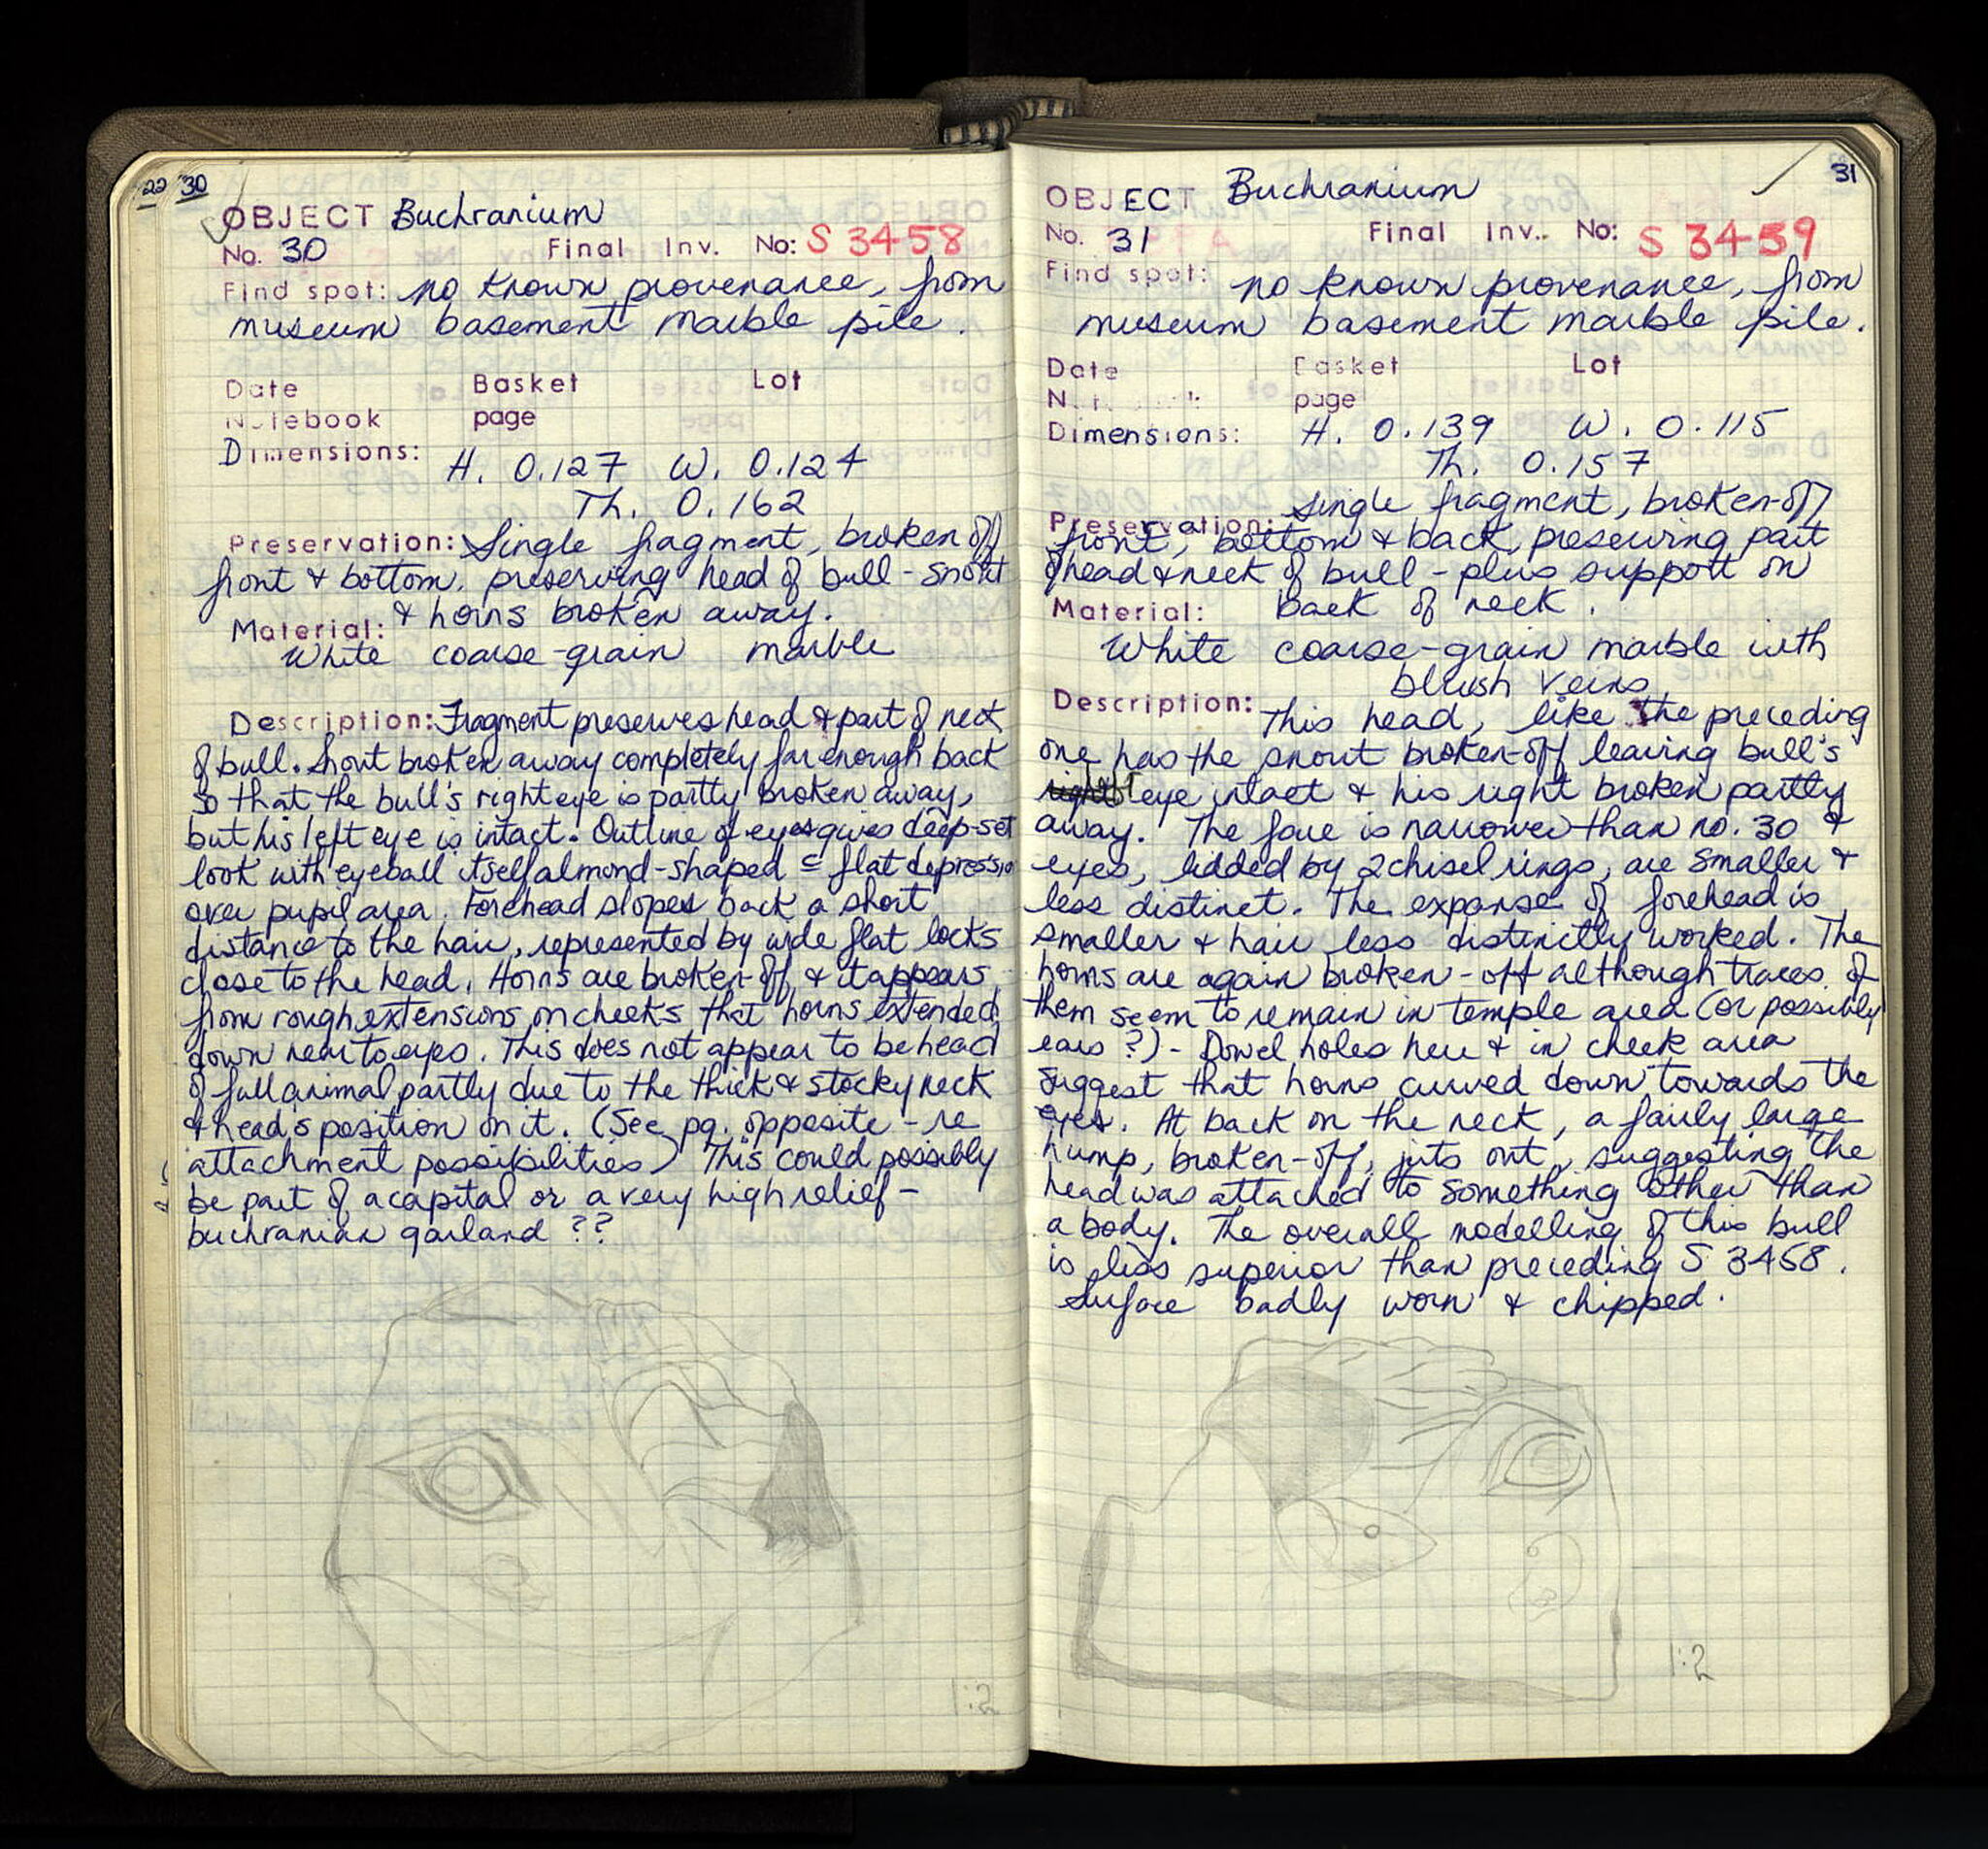 22 30
OBJECT Buchranium
No. 30 Final Inv. No: S 3458
Find spot: no known provenance, from
museum basement marble pile.
Date Basket Lot
Notebook page
Dimensions: H. 0.127 W. 0.124
Th. 0.162
Preservation: Single fragment, broken off
front & bottom. preserving head of bull - snout
& horns broken away.
Material:
White coarse-grain marble
Description: Fragment preserves head & part of neck
of bull. Snout broken away completely far enough back
so that the bull's right eye is partly broken away,
but his left eye is intact. Outline of eyes gives deep-set
look with eyeball itself almond-shaped c̄ flat depression
over pupil area. Forehead slopes back a short
distance to the hair, represented by wide flat locks
close to the head. Horns are broken-off, & it appears
from rough extensions on cheeks that horns extended
down near to eyes. This does not appear to be head
of full animal partly due to the thick & stocky neck
& head's position on it. (See pg. opposite - re
attachment possibilities) This could possibly
be part of a capital or a very high relief -
buchranian garland ??
1:2
31
OBJECT Buchranium
No. 31 Final Inv. No: S 3459
Find spot: no known provenance, from
museum basement marble pile.
Date Basket Lot
page
Dimensions: H. 0.139 W. 0.115
Th. 0.157
Preservation: single fragment, broken-off
front, bottom & back, preserving part
of head & neck of bull - plus support on
Material: back of neck.
White coarse-grain marble with
bluish veins
Description: This head, like the preceding
one has the snout broken-off leaving bull's
left eye intact & his right broken partly
away. The face is narrower than no. 30 &
eyes, lidded by 2 chisel rings, are smaller &
less distinct. The expanse of forehead is
smaller & hair less distinctly worked. The
horns are again broken-off although traces of
them seem to remain in temple area (or possibly
ears ?) - Dowel holes here & in cheek area
suggest that horns curved down towards the
eyes. At back on the neck, a fairly large
hump, broken-off, juts out, suggesting the
head was attached to something other than
a body. The overall modelling of this bull
is less superior than preceding S 3458.
Surface badly worn & chipped.
1:2